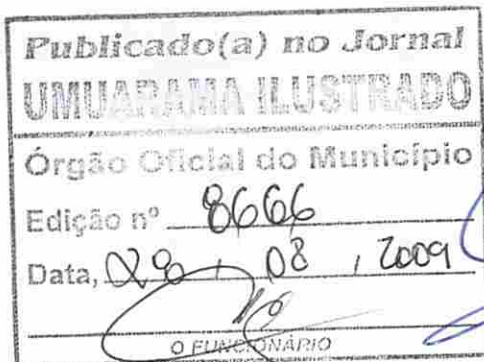 Publicado(a) no Jornal
UMUARAMA ILUSTRADO
Órgão Oficial do Município
Edição nº 8666
Data, 28 / 08 / 2009
O FUNCIONÁRIO